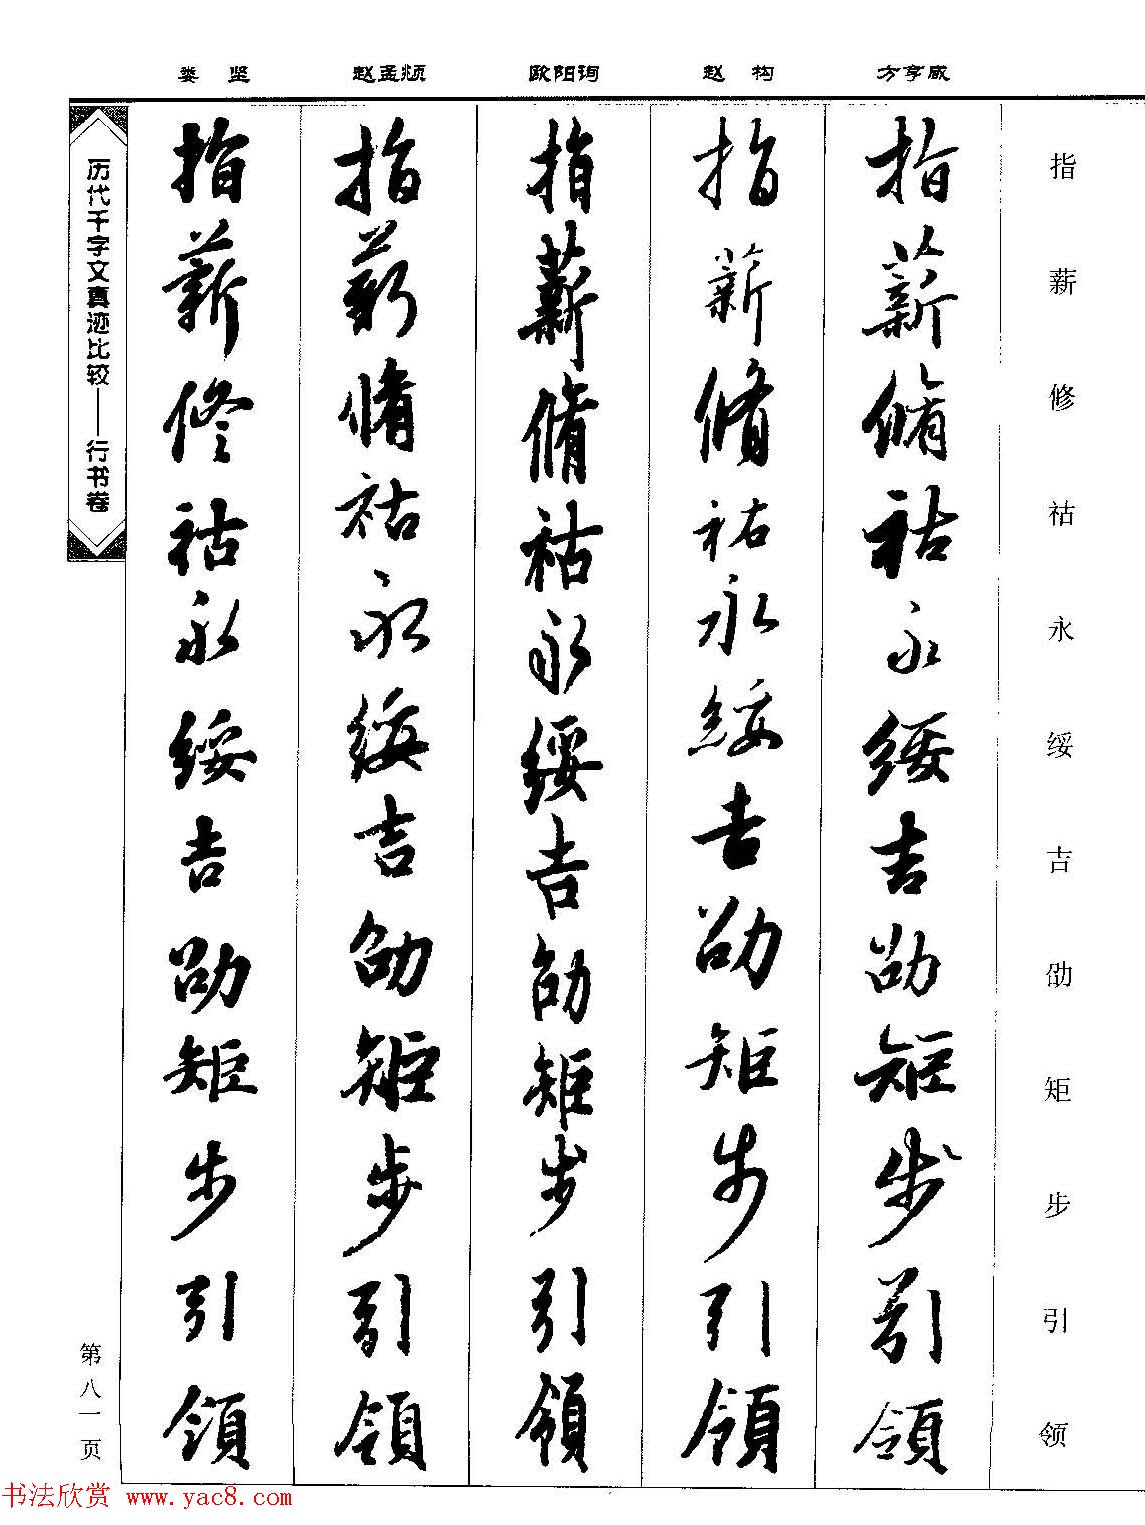 娄 坚 赵孟頫 欧阳询 赵 构 方亨咸
指薪修祜永绥吉劭矩步引领
指薪脩祜永綏吉劭矩步引領
指薪脩祐永綏吉劭矩步引領
指薪脩祜永綏吉劭矩步引領
指薪脩祜永綏吉劭矩步引領
指薪修祜永綏吉劭矩步引領
历代千字文真迹比较——行书卷
第八一页
书法欣赏 www.yac8.com